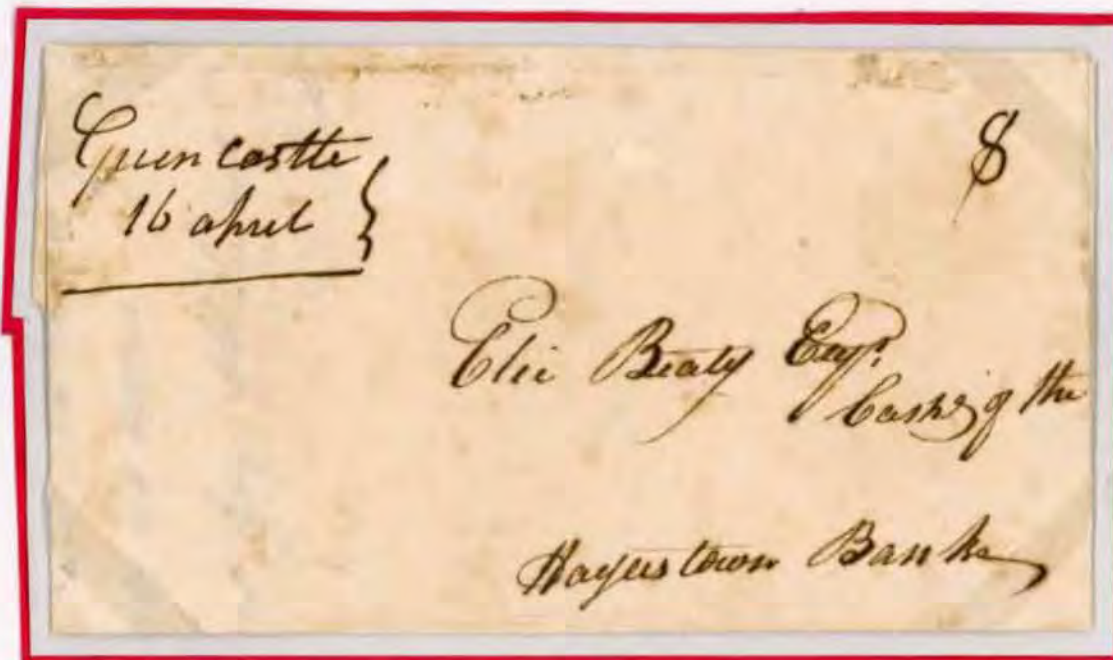 Greencastle
16 april
8
Elie Beaty Esqr.
Cashr of the
Hagerstown Bank